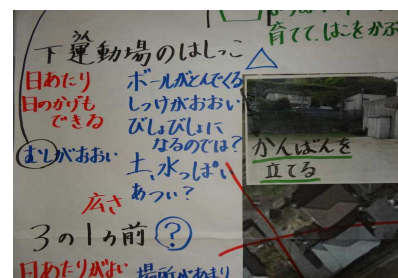 育てて、はこをかぶ
うん
下運動場のはしっこ
日あたり
日のかげも
できる
ボールがとんでくる
しっけがおおい
びしょびしょに
なるのでは?
むしがおおい
土、水っぽい
あつい?
かんばんを
立てる
広さ
3の1の前?
日あたりがよい
場所があまり